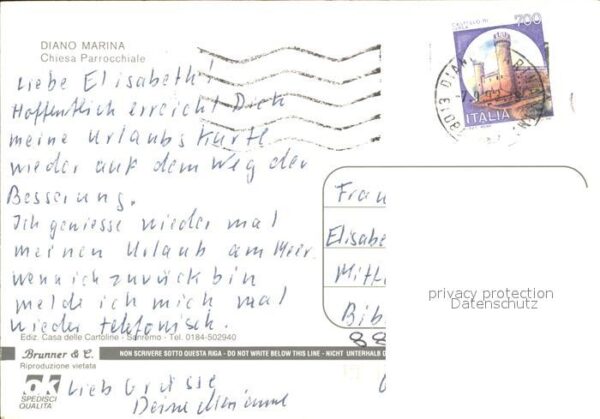 DIANO MARINA
Chiesa Parrocchiale
Liebe Elisabeth!
Hoffentlich erreicht Dich
meine Urlaubs Karte
wieder auf dem Weg der
Besserung.
Ich geniesse wieder mal
meinen Urlaub am Meer.
wenn ich zurück bin
melde ich mich mal
wieder telefonisch.
Ediz. Casa delle Cartoline - Sanremo - Tel. 0184-502940
Brunner & C.
Riproduzione vietata
NON SCRIVERE SOTTO QUESTA RIGA - DO NOT WRITE BELOW THIS LINE - NICHT UNTERHALB
ok
SPEDISCI
QUALITÀ
Lieb Grüsse
Deine
700
ITALIA
Frau
Elisabe
Mitt
Bib
88
privacy protection
Datenschutz